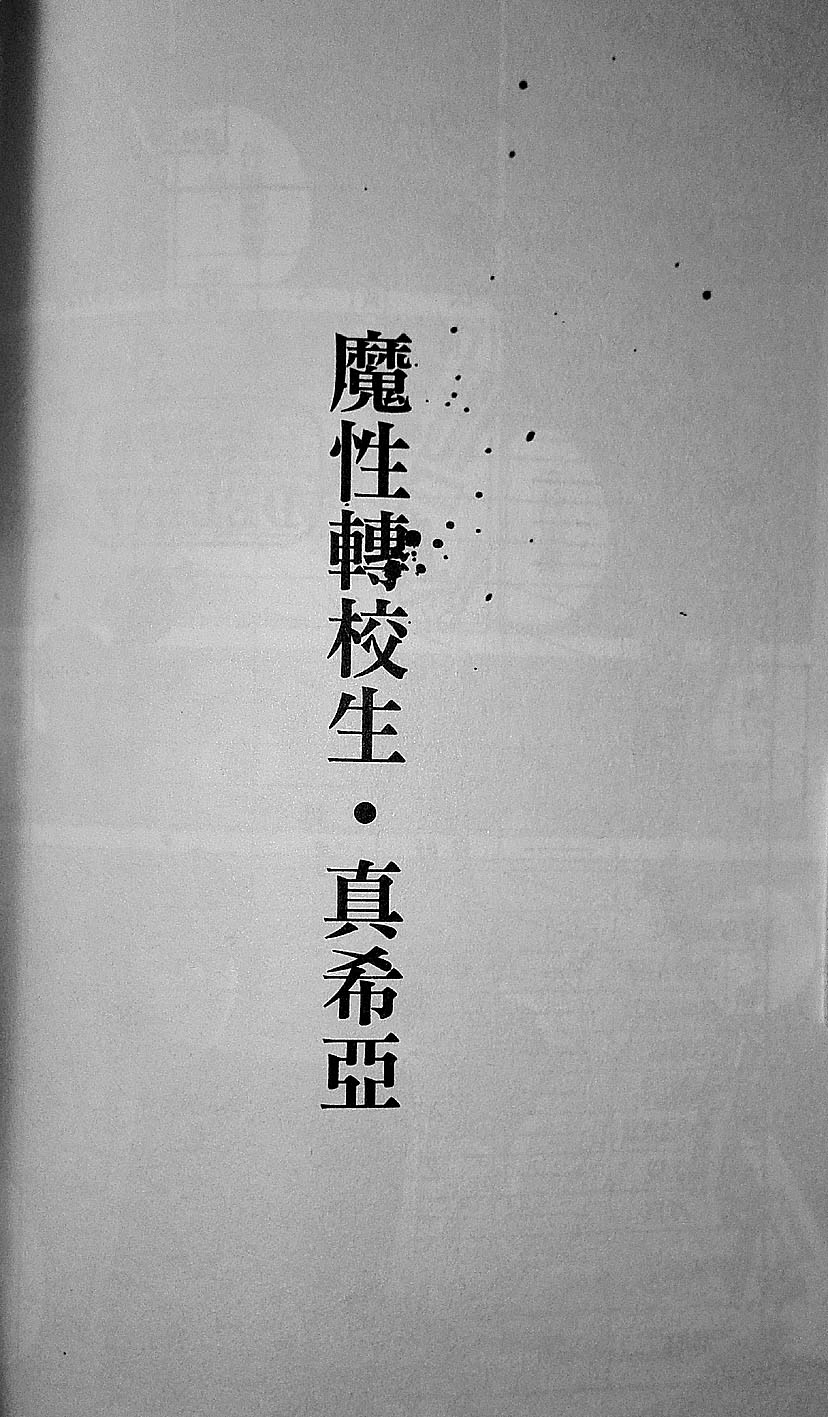 魔性轉校生・真希亞